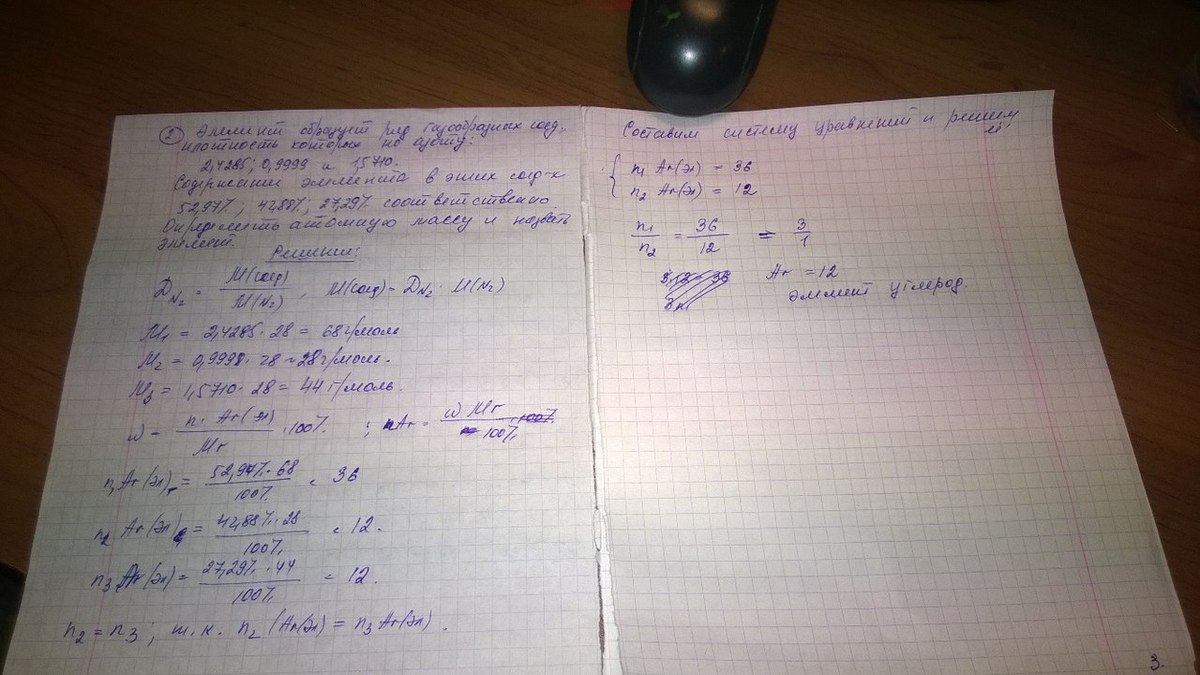 2 Элемент образует ряд газообразных соед.,
плотность которых по азоту:
2,4285; 0,9999 и 1,5710.
Содержание элемента в этих соед-х
52,97%; 42,88%; 27,29% соответственно.
Определить атомную массу и назвать
элемент.
Решение:
D_N₂ = M(соед) / M(N₂), M(соед) = D_N₂ · M(N₂)
M₁ = 2,4285 · 28 = 68 г/моль
M₂ = 0,9999 · 28 = 28 г/моль.
M₃ = 1,5710 · 28 = 44 г/моль.
ω = n · Ar(эл) / Mr · 100% ; nAr = ω Mr / 100%
n₁ Ar(эл) = 52,97% · 68 / 100% = 36
n₂ Ar(эл) = 42,88% · 28 / 100% = 12.
n₃ Ar(эл) = 27,29% · 44 / 100% = 12.
n₂ = n₃ ; т.к. n₂ (Ar(эл) = n₃ Ar(эл).
Составим систему уравнений и решим
её:
{ n₁ Ar(эл) = 36
n₂ Ar(эл) = 12
n₁ / n₂ = 36 / 12 => 3 / 1
Ar = 12
элемент углерод.
3.